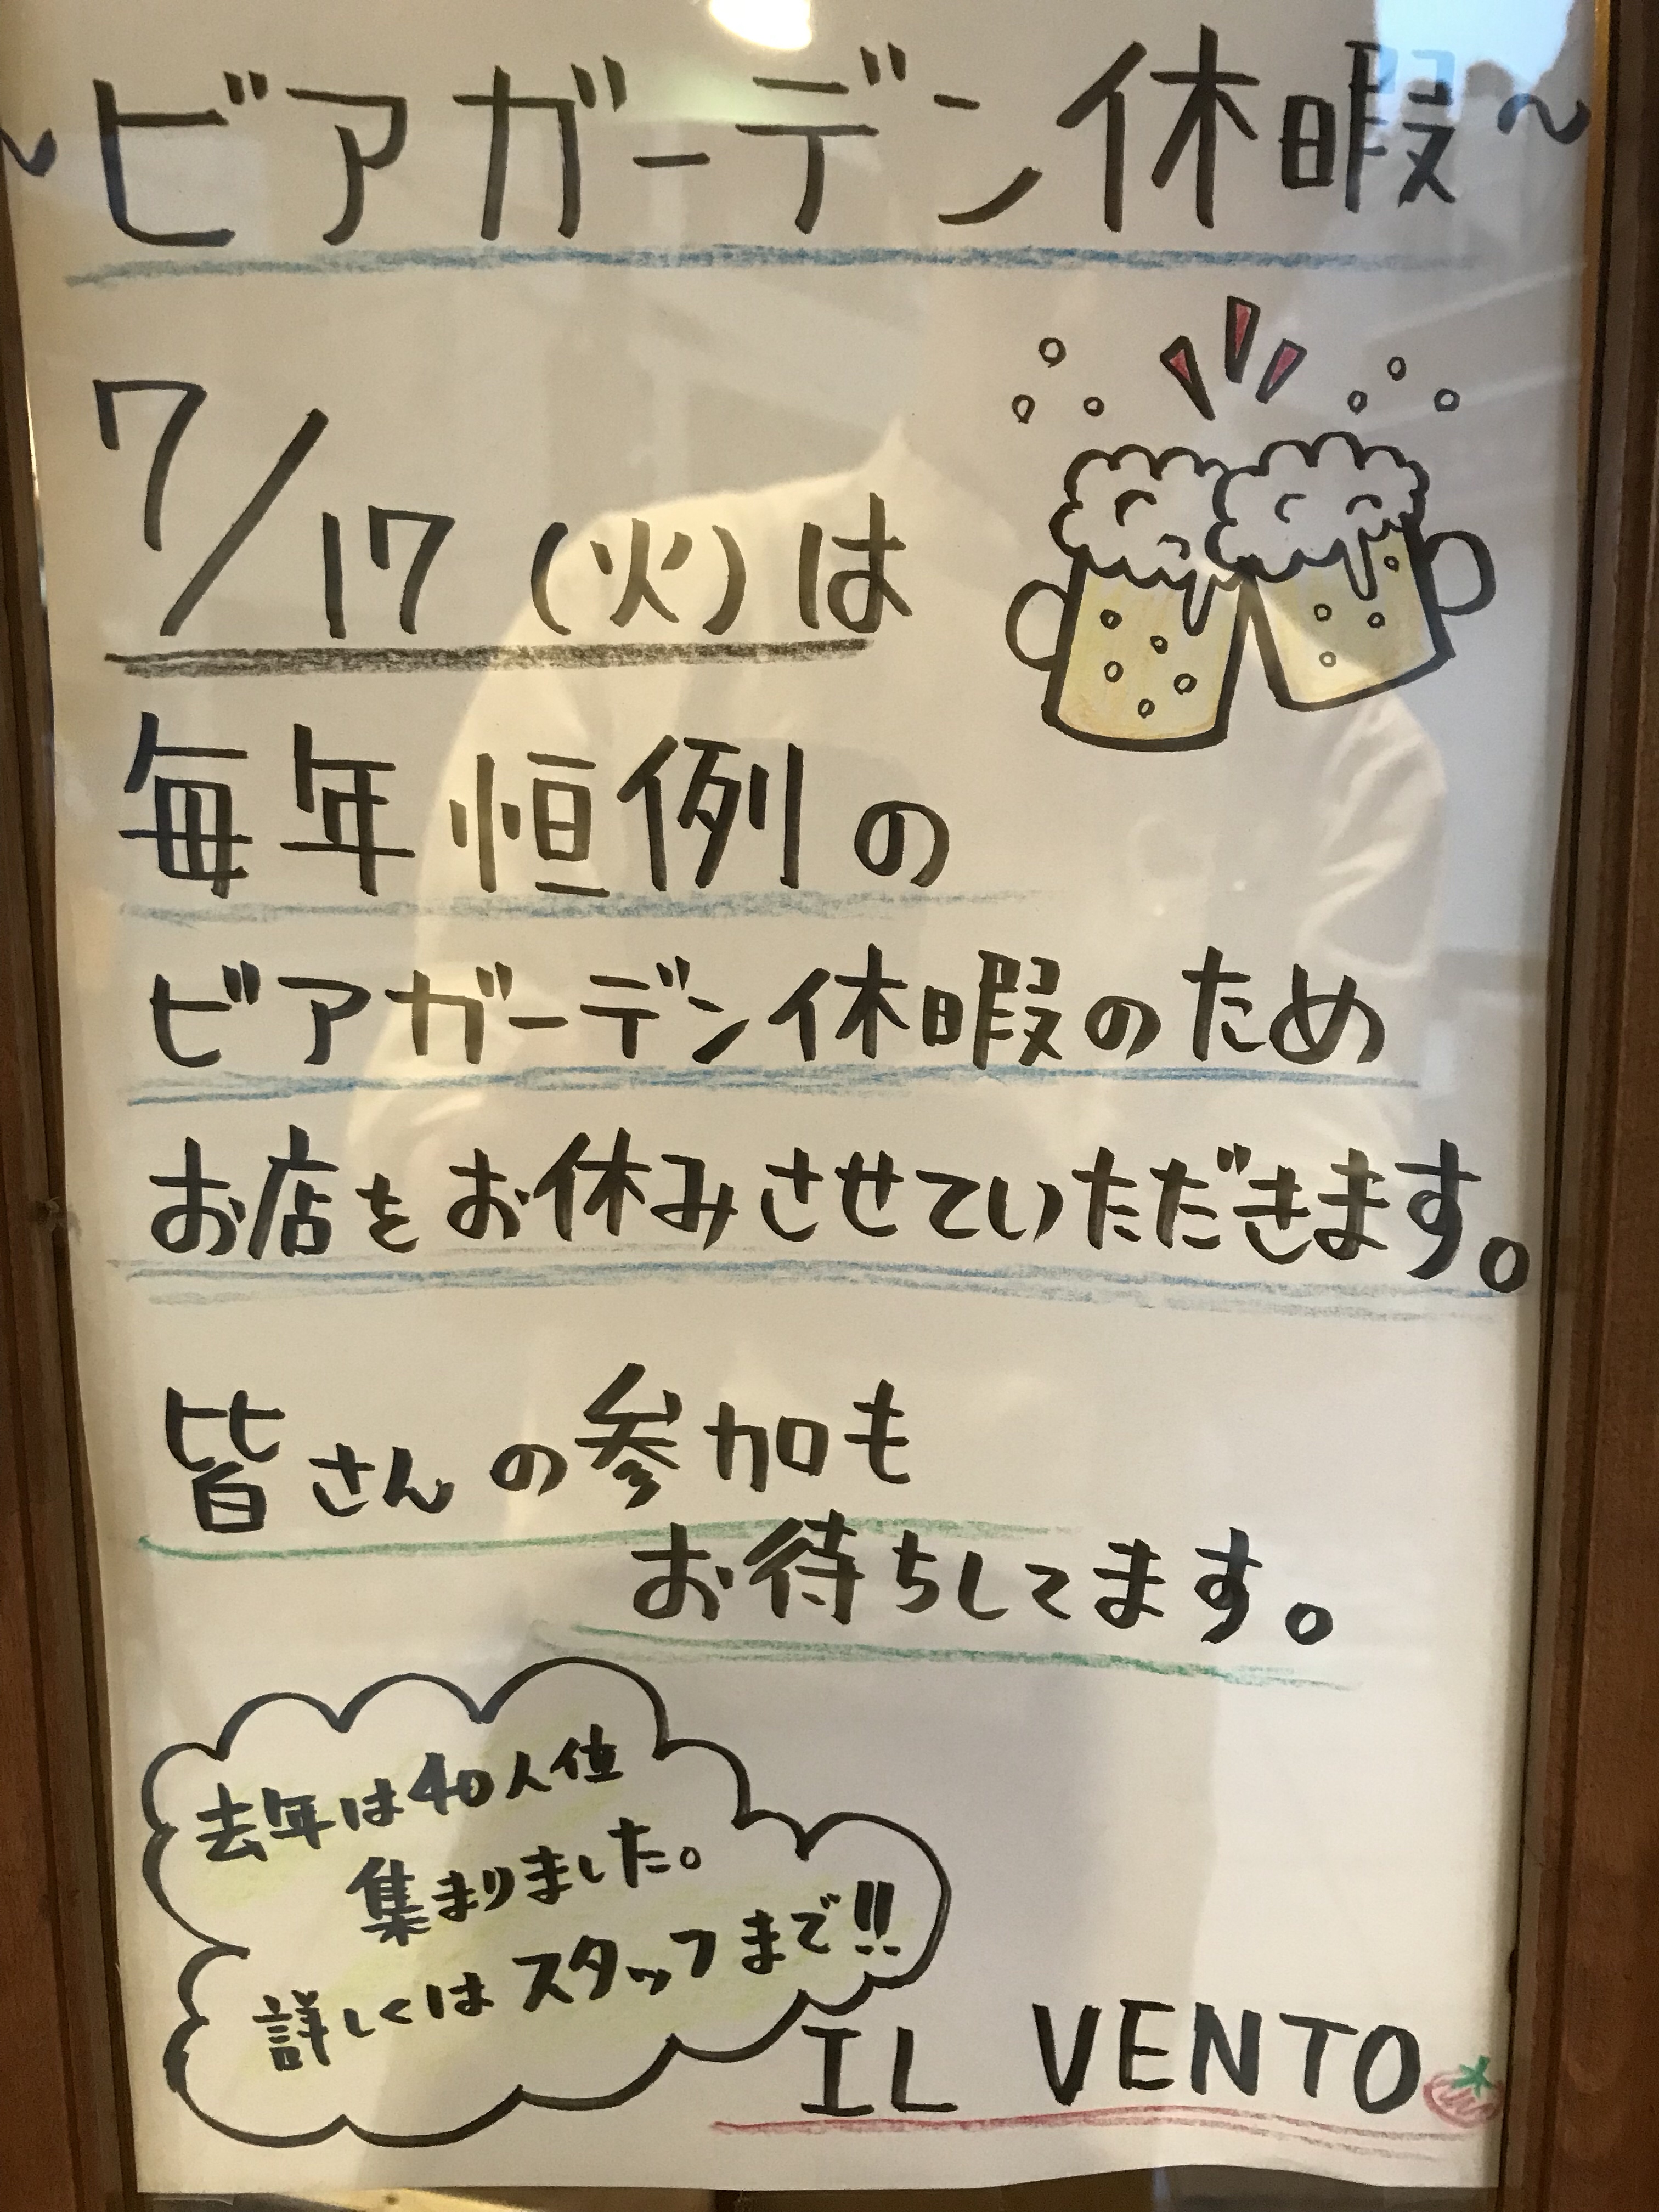 ～ビアガーデン休暇～
7/17（火）は
毎年恒例の
ビアガーデン休暇のため
お店をお休みさせていただきます。
皆さんの参加も
お待ちしてます。
去年は40人位
集まりました。
詳しくはスタッフまで!!
IL VENTO